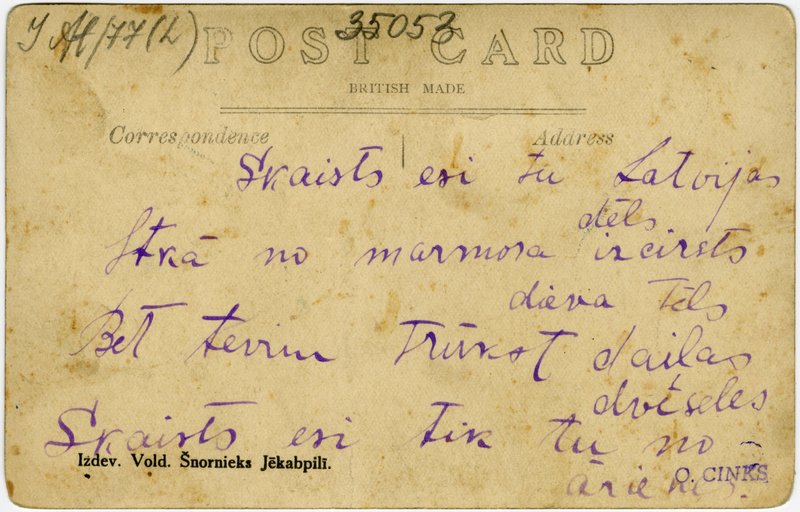 35053
POST CARD
BRITISH MADE
Correspondence Address
Skaists esi tu Latvijas
dēls
Itkā no marmora izcirsts
dieva tēls
Bet tevim trūkst daiļas
dvēseles
Skaists esi tik tu no
ārienes.
Izdev. Vold. Šnornieks Jēkabpilī.
O. CINKS